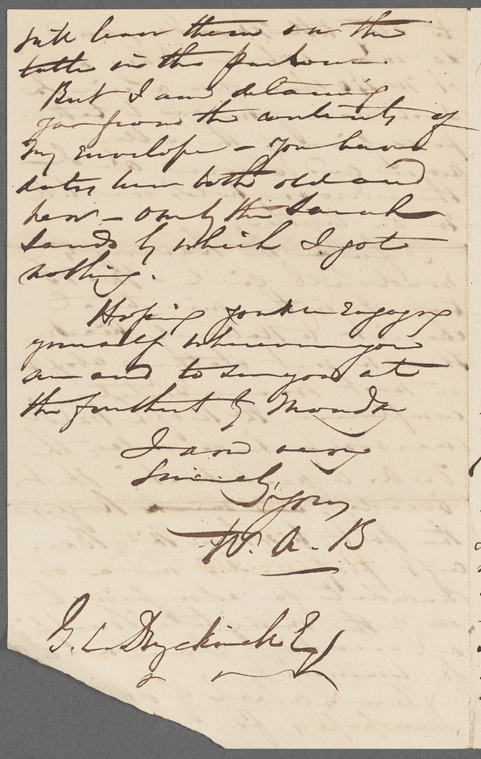 will leave them on the
table in the parlour.
But I am delaying
you from the contents of
my envelope - You have
dates here both old and
new - only the Sarah
Sands by which I got
nothing.
Hoping you are enjoying
yourself wherever you
are and to see you at
the furthest by Monday
I am very
Sincerely
Yours
W. A. B
G. L. Duyckinck Esq